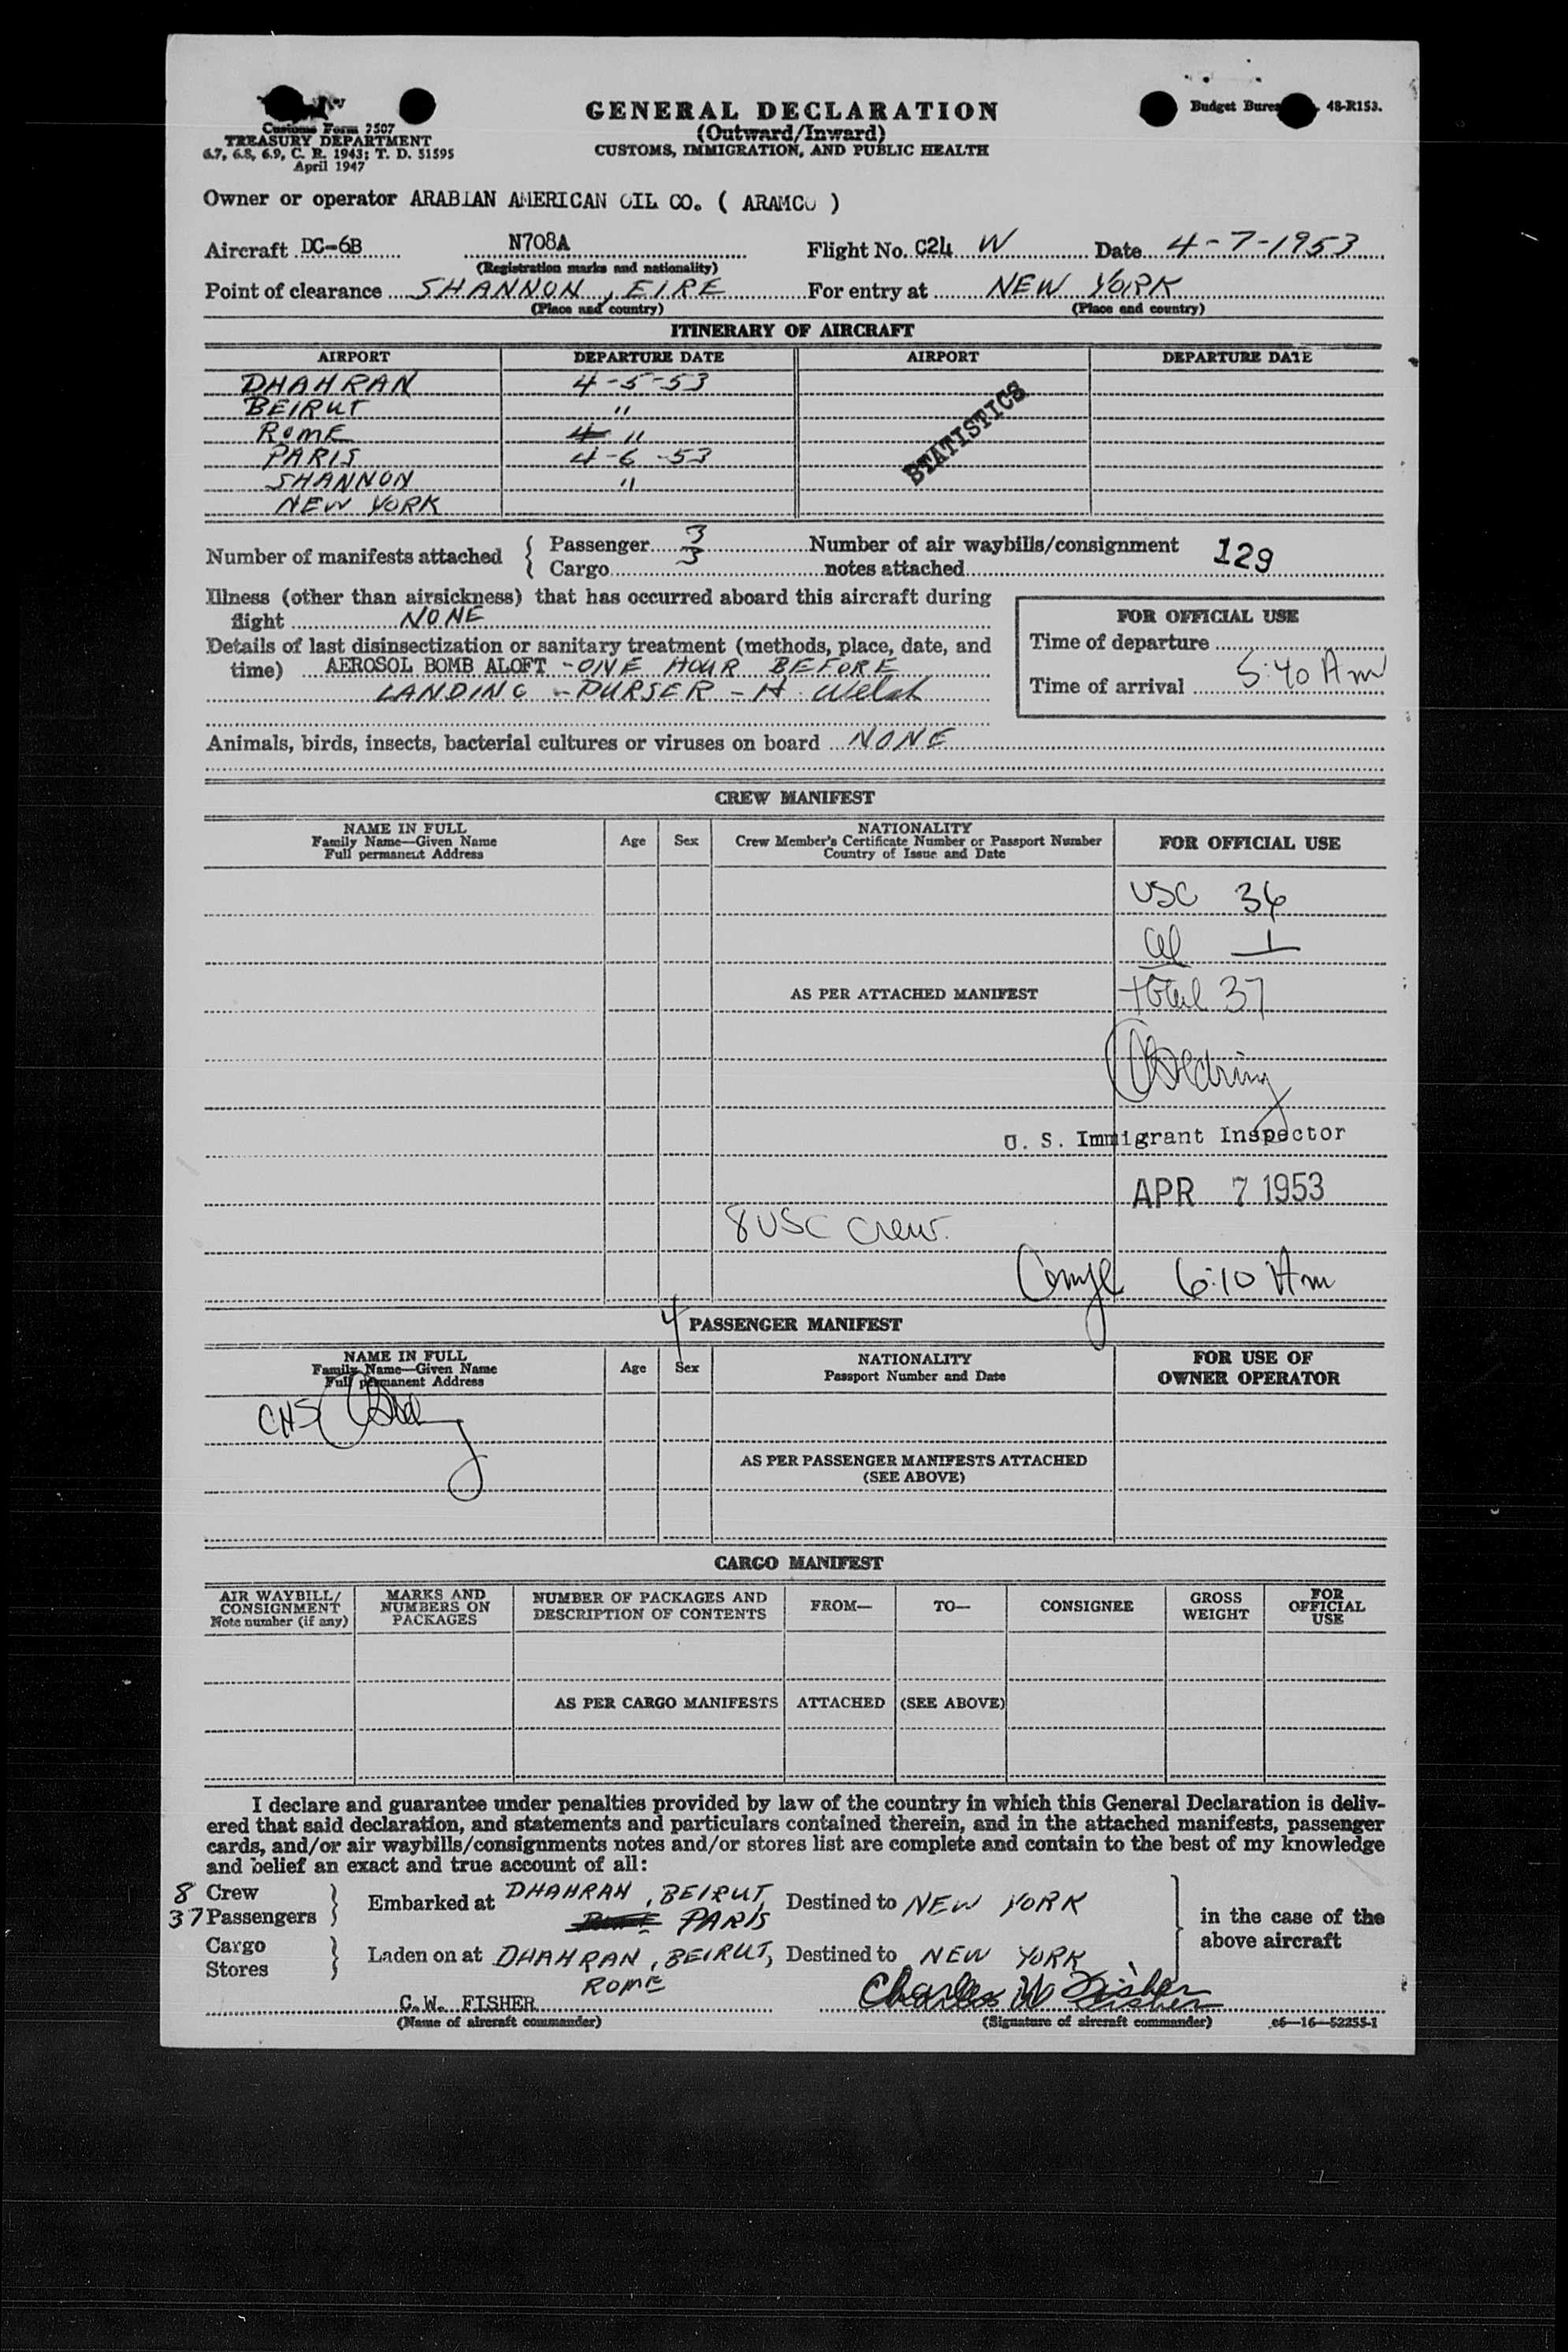 Customs Form 7507
TREASURY DEPARTMENT
6.7, 6.8, 6.9, C. R. 1943; T. D. 51595
April 1947
GENERAL DECLARATION
(Outward/Inward)
CUSTOMS, IMMIGRATION, AND PUBLIC HEALTH
Budget 48-R153.
Owner or operator ARABIAN AMERICAN OIL CO. ( ARAMCO )
Aircraft DC-6B N708A Flight No. C24 W Date 4-7-1953
(Registration marks and nationality)
Point of clearance SHANNON, EIRE For entry at NEW YORK
(Place and country) (Place and country)
ITINERARY OF AIRCRAFT
AIRPORT DEPARTURE DATE AIRPORT DEPARTURE DATE
DHAHRAN 4-5-53
BEIRUT "
ROME "
PARIS 4-6-53
SHANNON "
NEW YORK
STATISTICS
Number of manifests attached { Passenger 3 Number of air waybills/consignment 129
Cargo 3 notes attached
Illness (other than airsickness) that has occurred aboard this aircraft during
flight NONE
Details of last disinsectization or sanitary treatment (methods, place, date, and
time) AEROSOL BOMB ALOFT - ONE HOUR BEFORE
LANDING - PURSER - H. Welch
FOR OFFICIAL USE
Time of departure
Time of arrival 5:40 Am
Animals, birds, insects, bacterial cultures or viruses on board NONE
CREW MANIFEST
NAME IN FULL
Family Name—Given Name
Full permanent Address
Age Sex
NATIONALITY
Crew Member's Certificate Number or Passport Number
Country of Issue and Date
FOR OFFICIAL USE
USC 36
al 1
AS PER ATTACHED MANIFEST total 37
U. S. Immigrant Inspector
APR 7 1953
8 USC Crew.
6:10 Am
4
PASSENGER MANIFEST
NAME IN FULL
Family Name—Given Name
Full permanent Address
Age Sex
NATIONALITY
Passport Number and Date
FOR USE OF
OWNER OPERATOR
AS PER PASSENGER MANIFESTS ATTACHED
(SEE ABOVE)
CARGO MANIFEST
AIR WAYBILL/
CONSIGNMENT
Note number (if any)
MARKS AND
NUMBERS ON
PACKAGES
NUMBER OF PACKAGES AND
DESCRIPTION OF CONTENTS
FROM— TO— CONSIGNEE
GROSS
WEIGHT
FOR
OFFICIAL
USE
AS PER CARGO MANIFESTS ATTACHED (SEE ABOVE)
I declare and guarantee under penalties provided by law of the country in which this General Declaration is deliv-
ered that said declaration, and statements and particulars contained therein, and in the attached manifests, passenger
cards, and/or air waybills/consignments notes and/or stores list are complete and contain to the best of my knowledge
and belief an exact and true account of all:
8 Crew
37 Passengers } Embarked at DHAHRAN, BEIRUT, PARIS Destined to NEW YORK
in the case of the
above aircraft
Cargo
Stores } Laden on at DHAHRAN, BEIRUT, ROME Destined to NEW YORK
C.W. FISHER Charles W Fisher
(Name of aircraft commander) (Signature of aircraft commander) c6—16—52255-1